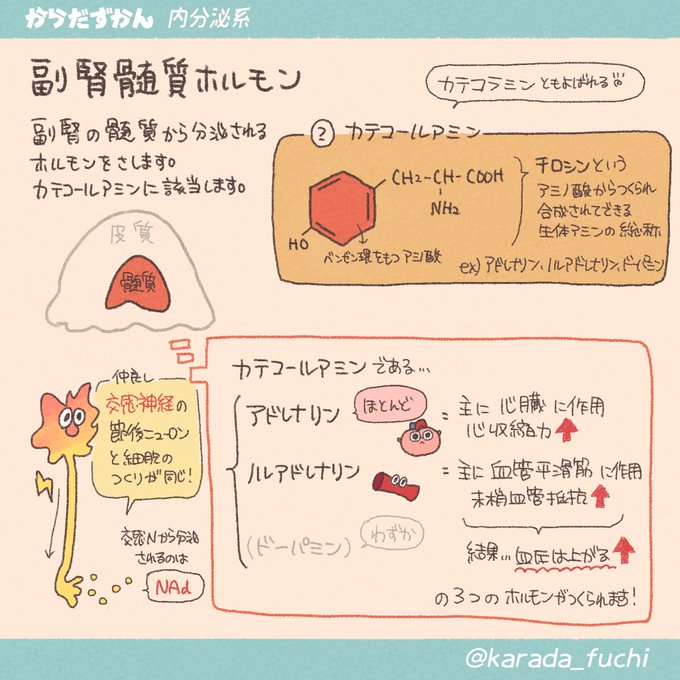 からだずかん 内分泌系
副腎髄質ホルモン
カテコラミンともよばれる
副腎の髄質から分泌される
ホルモンをさします。
カテコールアミンに該当します。
皮質
髄質
② カテコールアミン
CH2-CH-COOH
NH2
HO
ベンゼン環をもつアミノ酸
チロシンという
アミノ酸からつくられ
合成されてできる
生体アミンの総称
ex) アドレナリン、ノルアドレナリン、ドーパミン
仲良し
交感神経の
節後ニューロン
と細胞の
つくりが同じ!
交感Nから分泌
されるのは
NAd
カテコールアミンである…
アドレナリン ほとんど = 主に心臓に作用
心収縮力↑
ノルアドレナリン = 主に血管平滑筋に作用
末梢血管抵抗↑
(ドーパミン) わずか
結果… 血圧は上がる↑
の3つのホルモンがつくられます!
@karada_fuchi